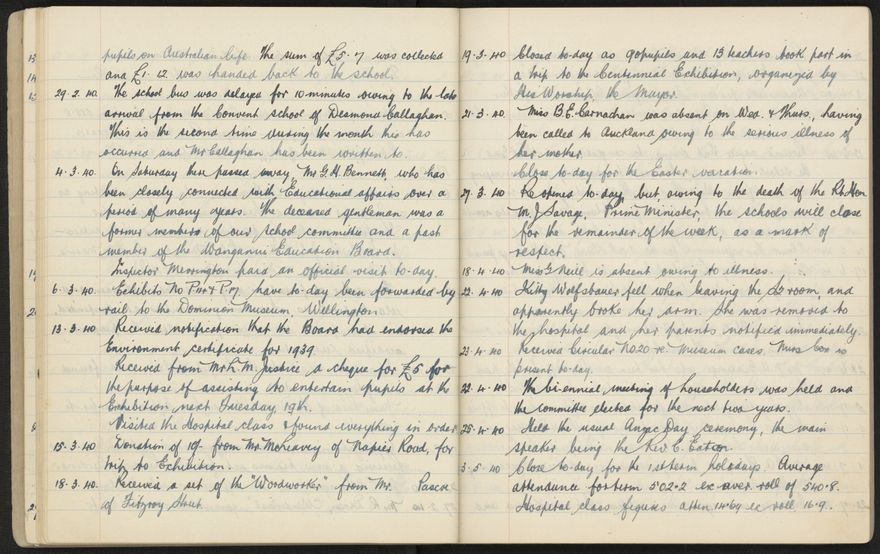 pupils on Australian life. The sum of £5.7 was collected
and £1.12 was handed back to the school.
29.2.40. The school bus was delayed for 10 minutes owing to the late
arrival from the Convent school of Desmond Callaghan.
This is the second time during the month this has
occurred and Mr Callaghan has been written to.
4.3.40. On Saturday there passed away, Mr G. H. Bennett, who has
been closely connected with Educational affairs over a
period of many years. The deceased gentleman was a
former member of our school committee and a past
member of the Wanganui Education Board.
Inspector Merrington paid an official visit to-day.
6.3.40. Exhibits No have to-day been forwarded by
rail to the Dominion Museum, Wellington.
13.3.40. Received notification that the Board had endorsed the
Environment certificate for 1939.
Received from Mr L. M. Justice a cheque for £5 for
the purpose of assisting to entertain pupils at the
Exhibition next Tuesday, 19th.
Visited the Hospital class & found everything in order
15.3.40 Donation of 10/- from Mr of Napier Road, for
trip to Exhibition.
18.3.40. Receive a set of the "Woodworker" from Mr. Pascoe
of Fitzroy Street.
19.3.40 Closed to-day as 90 pupils and 13 teachers took part in
a trip to the Centennial Exhibition, organized by
His Worship, the Mayor.
21.3.40. Miss B. E. Carnachan was absent on Wed. & Thurs., having
been called to Auckland owing to the serious illness of
her mother.
Close to-day for the Easter vacation.
27.3.40 Re opened to-day but owing to the death of the Rt. Hon.
M. J. Savage, Prime Minister, the schools will close
for the remainder of the week, as a mark of
respect.
18.4.40 Miss G Neill is absent owing to illness.
22.4.40 Kitty Wolfsbauer fell when leaving the room, and
apparently broke her arm. She was removed to
the hospital and her parents notified immediately.
23.4.40 Received Circular No. 20 re Museum cases. Miss Cox is
present to-day.
22.4.40 The biennial meeting of householders was held and
the committee elected for the next two years.
25.4.40 Held the usual Anzac Day ceremony, the main
speaker being the Rev C. Eaton.
3.5.40 Close to-day for the 1st term holidays. Average
attendance for term 502.2 ex aver. roll of 540.8.
Hospital class figures atten. 14.69 ex roll 16.9.